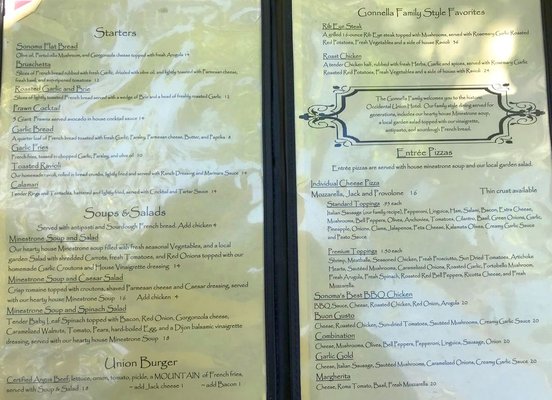 Starters
Sonoma Flat Bread
Olive oil, Portobello Mushroom, and Gorgonzola cheese topped with fresh Arugula 14
Bruschetta
Slices of French bread rubbed with fresh Garlic, drizzled with olive oil, and lightly toasted with Parmesan cheese,
fresh basil, and marinated tomatoes 12
Roasted Garlic and Brie
Slices of lightly toasted French bread served with a wedge of Brie and a head of freshly roasted Garlic 12
Prawn Cocktail
5 Giant Prawns served avocado in house cocktail sauce 14
Garlic Bread
A quarter loaf of French bread toasted with fresh Garlic, Parsley, Parmesan cheese, Butter, and Paprika 8
Garlic Fries
French fries, tossed in chopped Garlic, Parsley, and olive oil 10
Toasted Ravioli
Our homemade ravioli, rolled in bread crumbs, lightly fried and served with Ranch Dressing and Marinara Sauce 14
Calamari
Tender Rings and Tentacles, battered and lightly fried, served with Cocktail and Tartar Sauce 14
Soups & Salads
Served with antipasti and Sourdough French bread. Add chicken 4
Minestrone Soup and Salad
Our hearty house Minestrone soup filled with fresh seasonal Vegetables, and a local
garden Salad with shredded Carrots, fresh Tomatoes, and Red Onions topped with our
homemade Garlic Croutons and House Vinaigrette dressing 14
Minestrone Soup and Caesar Salad
Crisp romaine topped with croutons, shaved Parmesan cheese and Caesar dressing, served
with our hearty house Minestrone Soup 16 Add chicken 4
Minestrone Soup and Spinach Salad
Tender Baby Leaf Spinach topped with Bacon, Red Onion, Gorgonzola cheese,
Caramelized Walnuts, Tomato, Pears, hard-boiled Egg, and a Dijon balsamic vinaigrette
dressing, served with our hearty house Minestrone Soup 18
Union Burger
Certified Angus Beef, lettuce, onion, tomato, pickle, a MOUNTAIN of French fries,
served with Soup & Salad 18 ~ add Jack cheese 1 ~ add Bacon 1
Gonnella Family Style Favorites
Rib Eye Steak
A grilled 16-ounce Rib Eye steak topped with Mushrooms, served with Rosemary Garlic Roasted
Red Potatoes, Fresh Vegetables and a side of house Ravioli 36
Roast Chicken
A tender Chicken half, rubbed with fresh Herbs, Garlic and spices, served with Rosemary Garlic
Roasted Red Potatoes, Fresh Vegetables and a side of house Ravioli 24
The Gonnella Family welcomes you to the historic
Occidental Union Hotel. Our family style dining served for
generations, includes our hearty house Minestrone soup,
a local garden salad topped with our vinaigrette,
antipasto, and sourdough French bread.
Entrée Pizzas
Entrée pizzas are served with house minestrone soup and our local garden salad.
Individual Cheese Pizza
Mozzarella, Jack and Provolone 16 Thin crust available
Standard Toppings .95 each
Italian Sausage (our family recipe), Pepperoni, Linguica, Ham, Salami, Bacon, Extra Cheese,
Mushrooms, Bell Peppers, Olives, Anchovies, Tomatoes, Cilantro, Basil, Green Onions, Garlic,
Pineapple, Onions, Clams, Jalapenos, Feta Cheese, Kalamata Olives, Creamy Garlic Sauce
and Pesto Sauce
Premium Toppings 1.50 each
Shrimp, Meatballs, Seasoned Chicken, Fresh Prosciutto, Sun Dried Tomatoes, Artichoke
Hearts, Sautéed Mushrooms, Caramelized Onions, Roasted Garlic, Portobello Mushrooms,
Fresh Arugula, Fresh Spinach, Roasted Red Bell Peppers, Ricotta Cheese, and Fresh
Mozzarella.
Sonoma's Best BBQ Chicken
BBQ Sauce, Cheese, Roasted Chicken, Red Onion, Arugula 20
Buon Gusto
Cheese, Roasted Chicken, Sun-dried Tomatoes, Sautéed Mushrooms, Creamy Garlic Sauce 20
Combination
Cheese, Mushrooms, Olives, Bell Peppers, Pepperoni, Linguica, Sausage, Onion 20
Garlic Gold
Cheese, Italian Sausage, Sautéed Mushrooms, Caramelized Onions, Creamy Garlic Sauce 20
Margherita
Cheese, Roma Tomato, Basil, Fresh Mozzarella 20